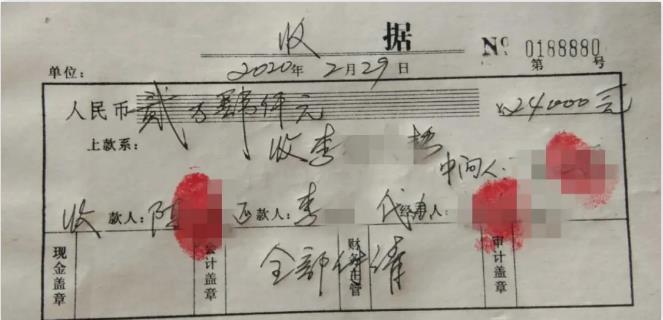 收 据
№ 0188880
单位： 2020年2月29日 第 号
人民币 贰万肆仟元 ¥24000元
上款系： 收李
中间人：
收款人：陈 还款人：李 代经手人：
全部结清
现金盖章 会计盖章 财务主管 审计盖章